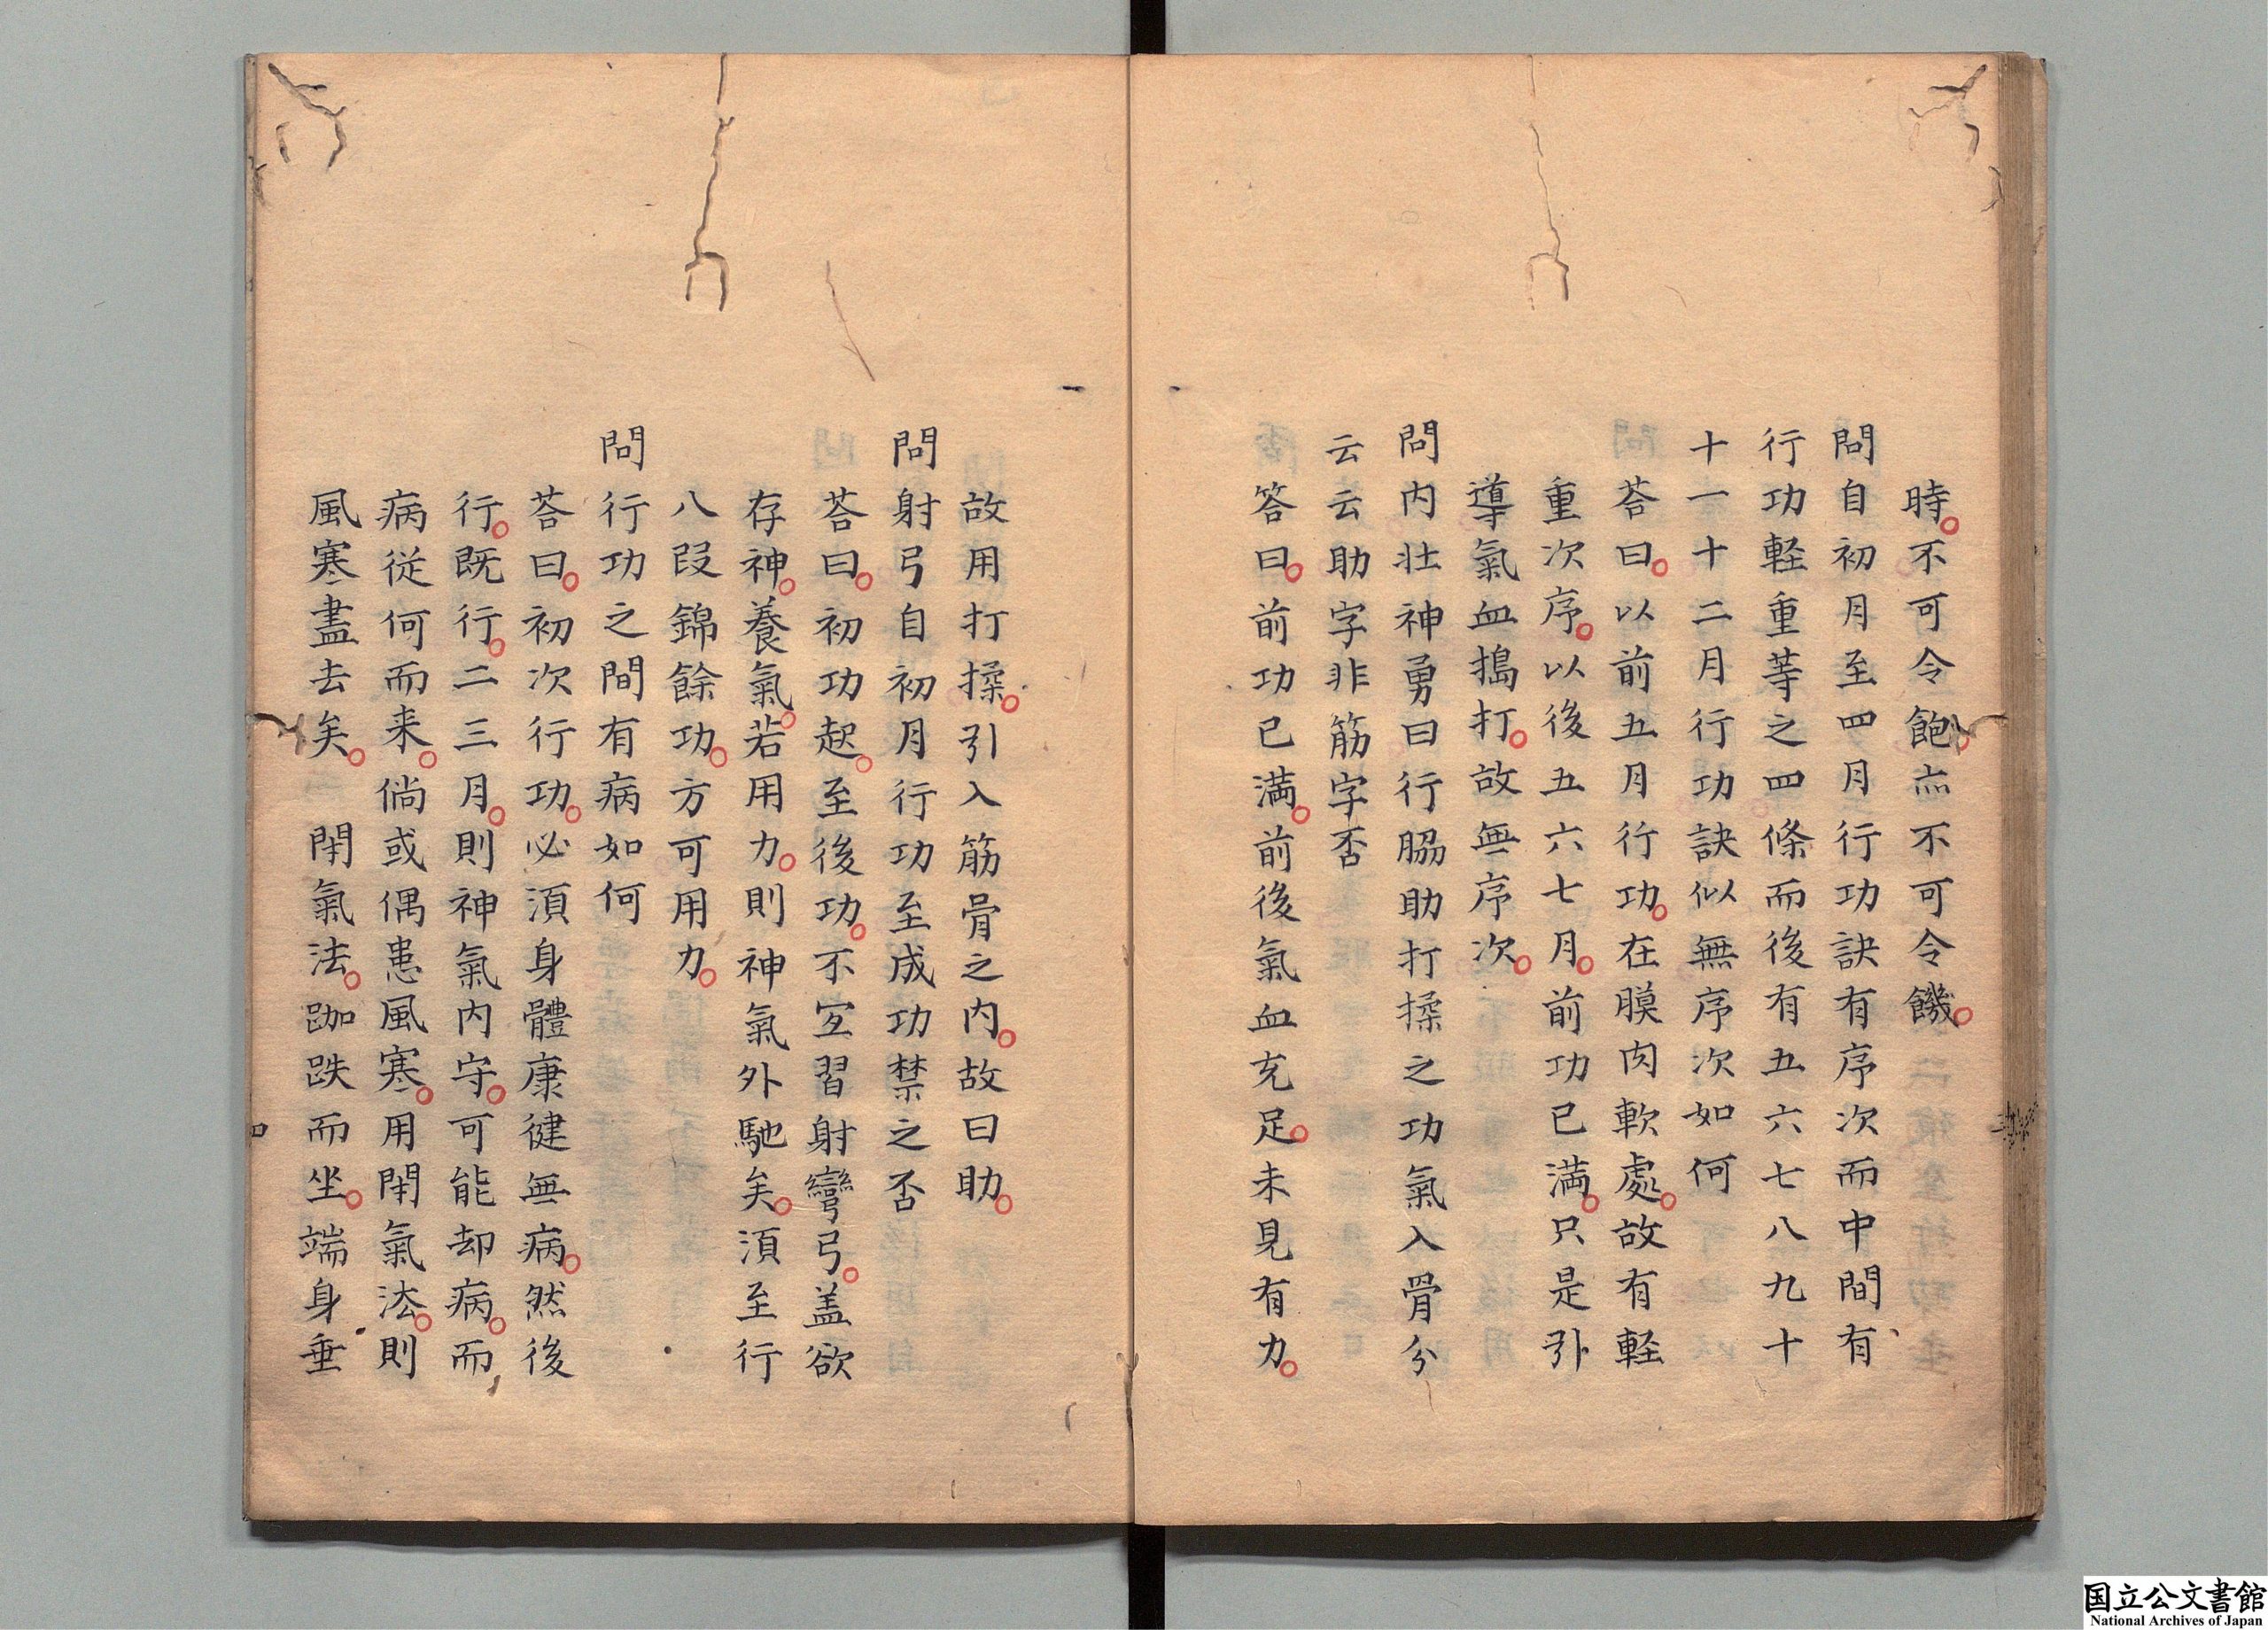 時。不可令飽。亦不可令饑。
問自初月至四月行功訣有序次而中間有
行功軽重等之四條而後有五六七八九十
十一十二月行功訣似無序次如何
荅曰。以前五月行功。在膜肉軟處。故有軽
重次序。以後五六七月。前功已満。只是引
導氣血搗打。故無序次。
問内壮神勇曰行脇助打揉之功氣入骨分
云云助字非筋字否
答曰。前功已満。前後氣血充足。未見有力。
故用打揉。引入筋骨之内。故曰助。
問射弓自初月行功至成功禁之否
荅曰。初功起。至後功。不宜習射彎弓。盖欲
存神。養氣。若用力。則神氣外馳矣。須至行
八段錦餘功。方可用力。
問行功之間有病如何
荅曰。初次行功。必須身體康健無病。然後
行。既行。二三月。則神氣内守。可能却病。而
病従何而来。倘或偶患風寒。用閉氣法。則
風寒盡去矣。 閉氣法。跏趺而坐。端身垂
国立公文書館
National Archives of Japan